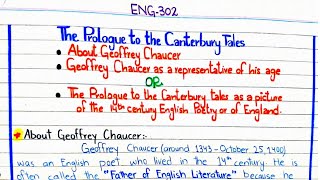 ENG-302
The Prologue to the Canterbury Tales
• About Geoffrey Chaucer
• Geoffrey Chaucer as a representative of his age
OR
• The Prologue to the Canterbury tales as a picture
of the 14th century English Poetry or of England.
* About Geoffrey Chaucer:-
Geoffrey Chaucer (around 1343-October, 25, 1400)
was an English poet who lived in the 14th century. He is
often called the "Father of English Literature" because he